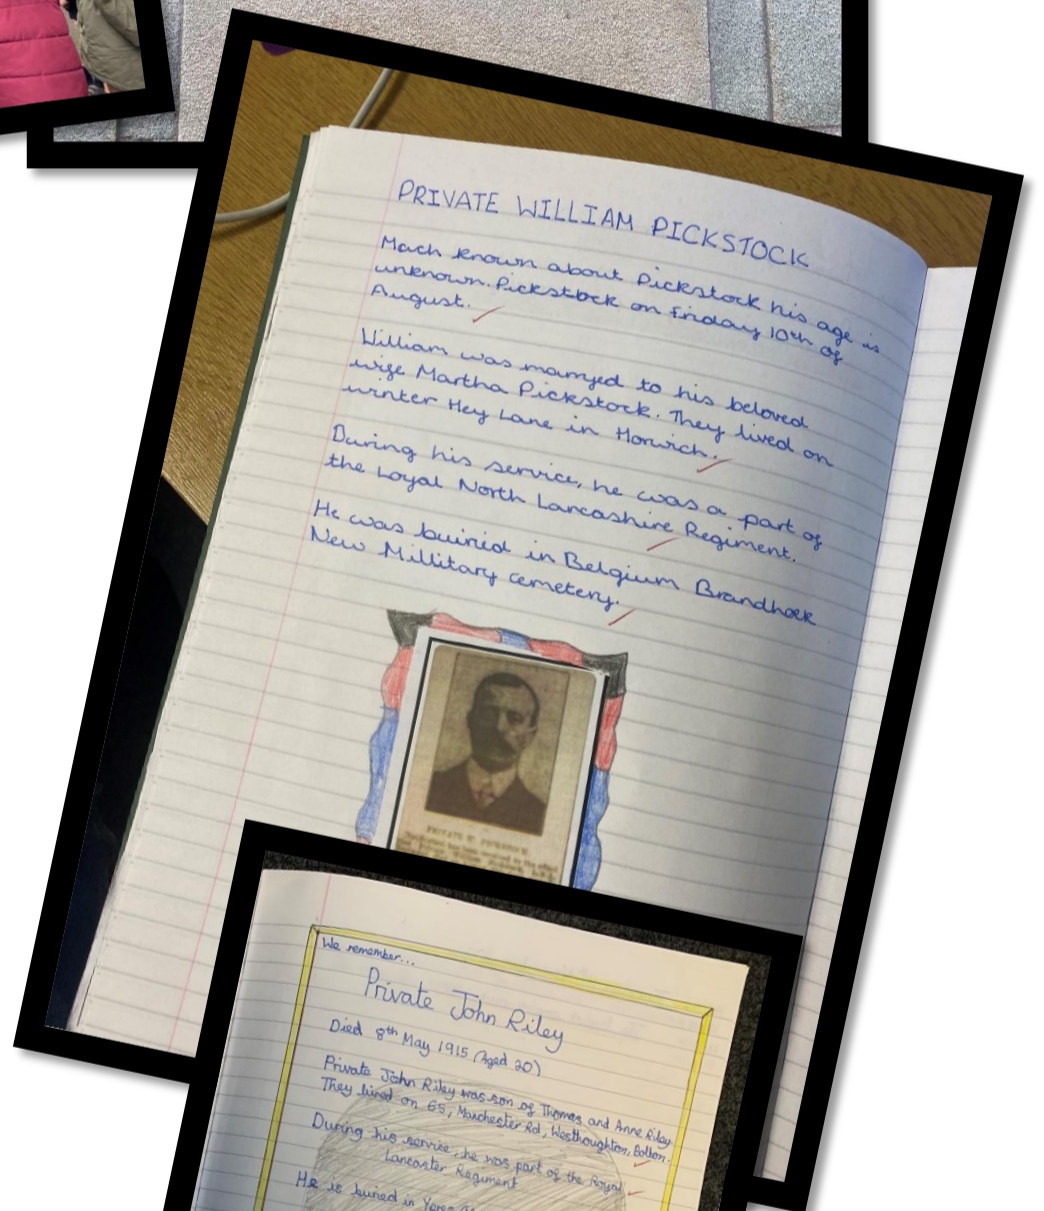 PRIVATE WILLIAM PICKSTOCK
Mach known about Pickstock his age is
unknown. Pickstock on Friday 10th of
August.
William was marryed to his beloved
wife Martha Pickstock. They lived on
winter Hey Lane in Horwich.
During his service, he was a part of
the Loyal North Lancashire Regiment.
He was buiried in Belgium Brandhoek
New Millitary cemetery.
PRIVATE W. PICKSTOCK
We remember...
Private John Riley
Died 8th May 1915 (Aged 20)
Private John Riley was son of Thomas and Anne Riley.
They lived on 65, Manchester Rd, Westhoughton, Bolton.
During his service, he was part of the Royal
Lancaster Regiment
He is buried in Ypres